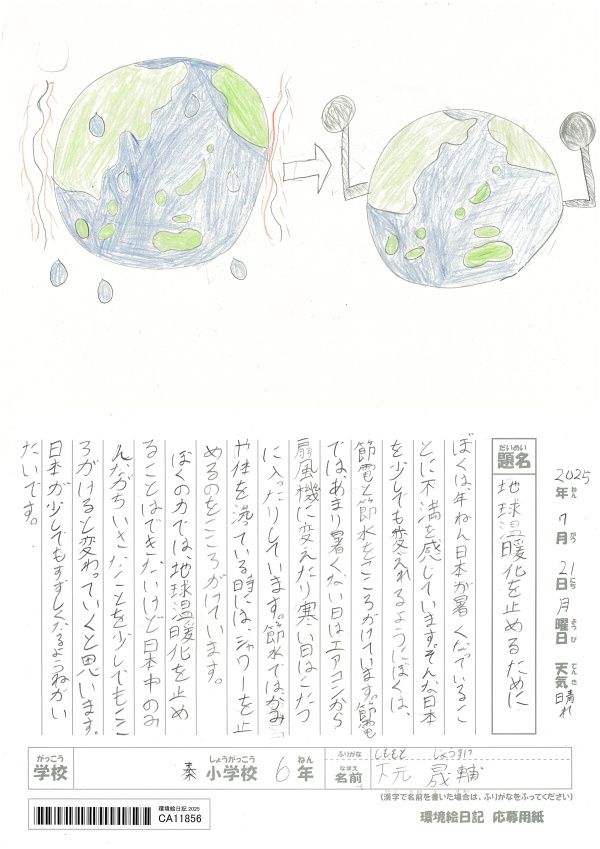 2025年ねん 7月がつ 21日にち 月曜日ようび 天気てんき 晴れ
だいめい
題名
地球温暖化を止めるために
ぼくは年ねん日本が暑くなっているこ
とに不満を感じています。そんな日本
を少しでも変えれるようにぼくは、
節電と節水をこころがけています。節電
では、あまり暑くない日はエアコンから
扇風機に変えたり寒い日はこたつ
に入ったりしています。節水では、かみ
や体を洗っている時には、シャワーを止
めるのをこころがけています。
ぼくの力では、地球温暖化を止め
ることはできないけど日本中のみ
んながちいさなことを少しでもここ
ろがけると変わっていくと思います。
日本が少しでもすずしくなるようねがい
たいです。
がっこう
学校
秦 小学校 6年
しょうがっこう
ねん
ふりがな
しももと じょうすけ
なまえ
名前
下元 晟輔
(漢字で名前を書いた場合は、ふりがなをふってください)
環境絵日記 2025
CA11856
環境絵日記 応募用紙